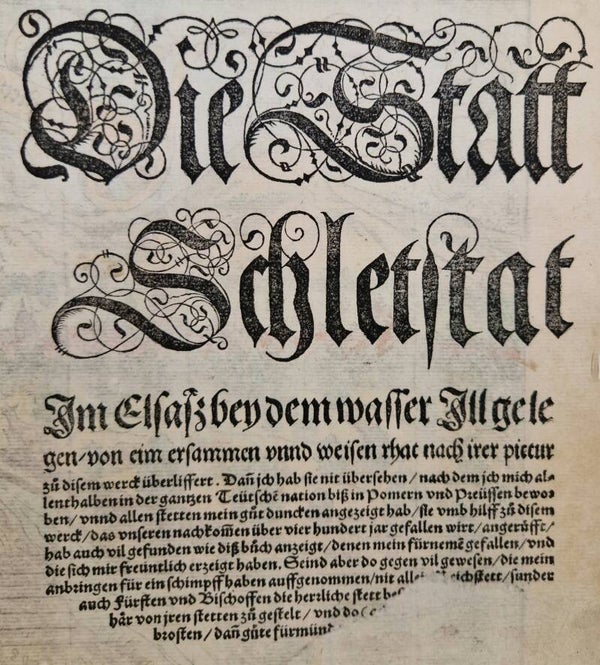 Die Statt
Schletstat
Im Elsasz bey dem wasser Ill gele
gen/von eim ersammen vnnd weisen rhat nach irer pictur
zů disem werck überliffert. Dañ ich hab sie nit übersehen/nach dem ich mich al-
lenthalben in der gantzen Teütschē nation biß in Pomern vnd Preüssen bewor
ben/vnnd allen stetten mein gůt duncken angezeigt hab/sie vmb hilff zů disem
werck/das vnseren nachkom̃en über vier hundert jar gefallen wirt/angerůfft/
hab auch vil gefunden wie diß bůch anzeigt/denen mein fürnemē gefallen/vnd
die sich mir freuntlich erzeigt haben. Seind aber do gegen vil gewesen/die mein
anbringen für ein schimpff haben auffgenommen/nit /sunder
auch Fürsten vnd Bischoffen die herrliche stett
hår von jren stetten zů gestelt/vnd do
brosten/dañ gůte